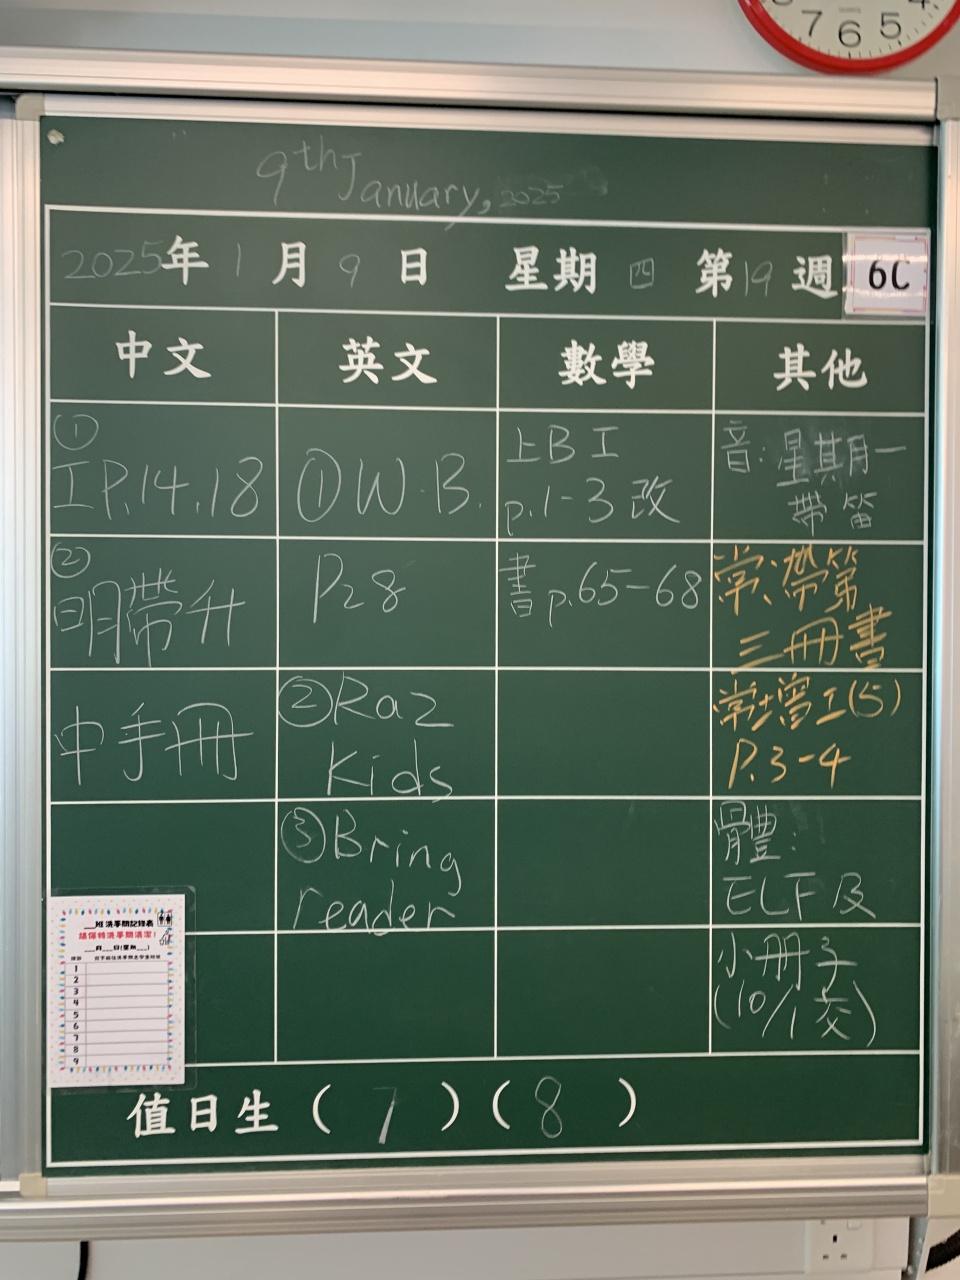 7 6 5
9th January, 2025
2025年1月9日 星期四 第19週
6C
中文 英文 數學 其他
①
工P.14,18
②
明帶升
中手冊
①W.B.
P28
②Raz
Kids
③Bring
reader
上B工
p.1-3改
書p.65-68
音:星期一
帶笛
常:帶第
三冊書
常增工(5)
P.3-4
體:
ELF及
小冊子
(10/1交)
班洗手間記錄表
請保持洗手間清潔!
月 日(星期 )
1
2
3
4
5
6
7
8
9
值日生(7)(8)